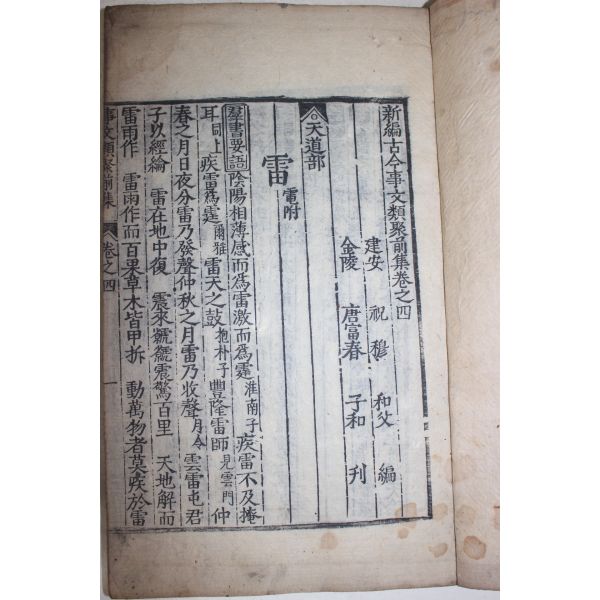 新編古今事文類聚前集卷之四
建安 祝穆 和父 編
金陵 唐富春 子和 刊
天道部
雷 電附
羣書要語 陰陽相薄感而爲雷激而爲霆 淮南子 疾雷不及掩
耳 同上 疾雷爲霆 爾雅 雷天之鼓 抱朴子 豐隆雷師 見雲門 仲
春之月日夜分雷乃發聲仲秋之月雷乃收聲 月令 雲雷屯君
子以經綸 雷在地中復 震來虩虩震驚百里 天地解而
雷雨作 雷雨作而百果草木皆甲拆 動萬物者莫疾於雷
事文類聚前集 卷之四 一